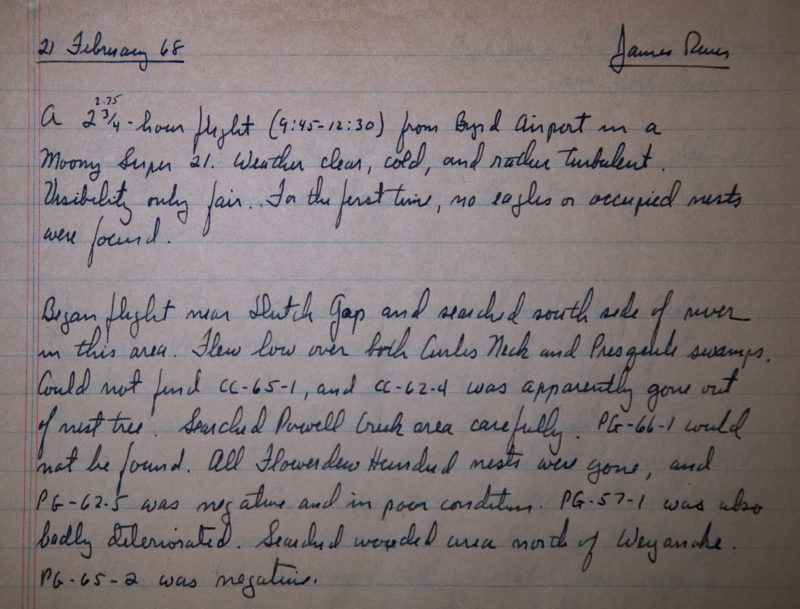 21 February 68
James River
2.75
A 2 3/4-hour flight (9:45-12:30) from Byrd Airport in a
Moony Super 21. Weather clear, cold, and rather turbulent.
Visibility only fair. For the first time, no eagles or occupied nests
were found.
Began flight near Dutch Gap and searched south side of river
in this area. Flew low over both Curles Neck and Presquile swamps.
Could not find CC-65-1, and CC-62-4 was apparently gone out
of nest tree. Searched Powell Creek area carefully. PG-66-1 could
not be found. All Flowerdew Hundred nests were gone, and
PG-62-5 was negative and in poor condition. PG-57-1 was also
badly deteriorated. Searched wooded area north of Weyanoke.
PG-65-2 was negative.